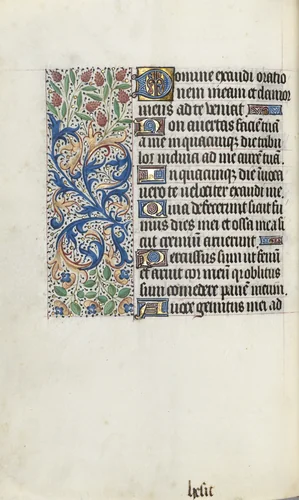 Domine exaudi oratio
nem meam et clamor
meus ad te veniat
Non avertas faciē tuā
a me in quacunque die tribu
lor inclina ad me aurē tuā.
In quacunque die īvoca
vero te velociter exaudi me.
Quia defecerunt sicut fu
mus dies mei et ossa mea si
cut cremiū aruerunt
Percussus sum ut fenū
et aruit cor meū q oblitus
sum comedere panē meum.
A voce gemitus mei ad
hesit